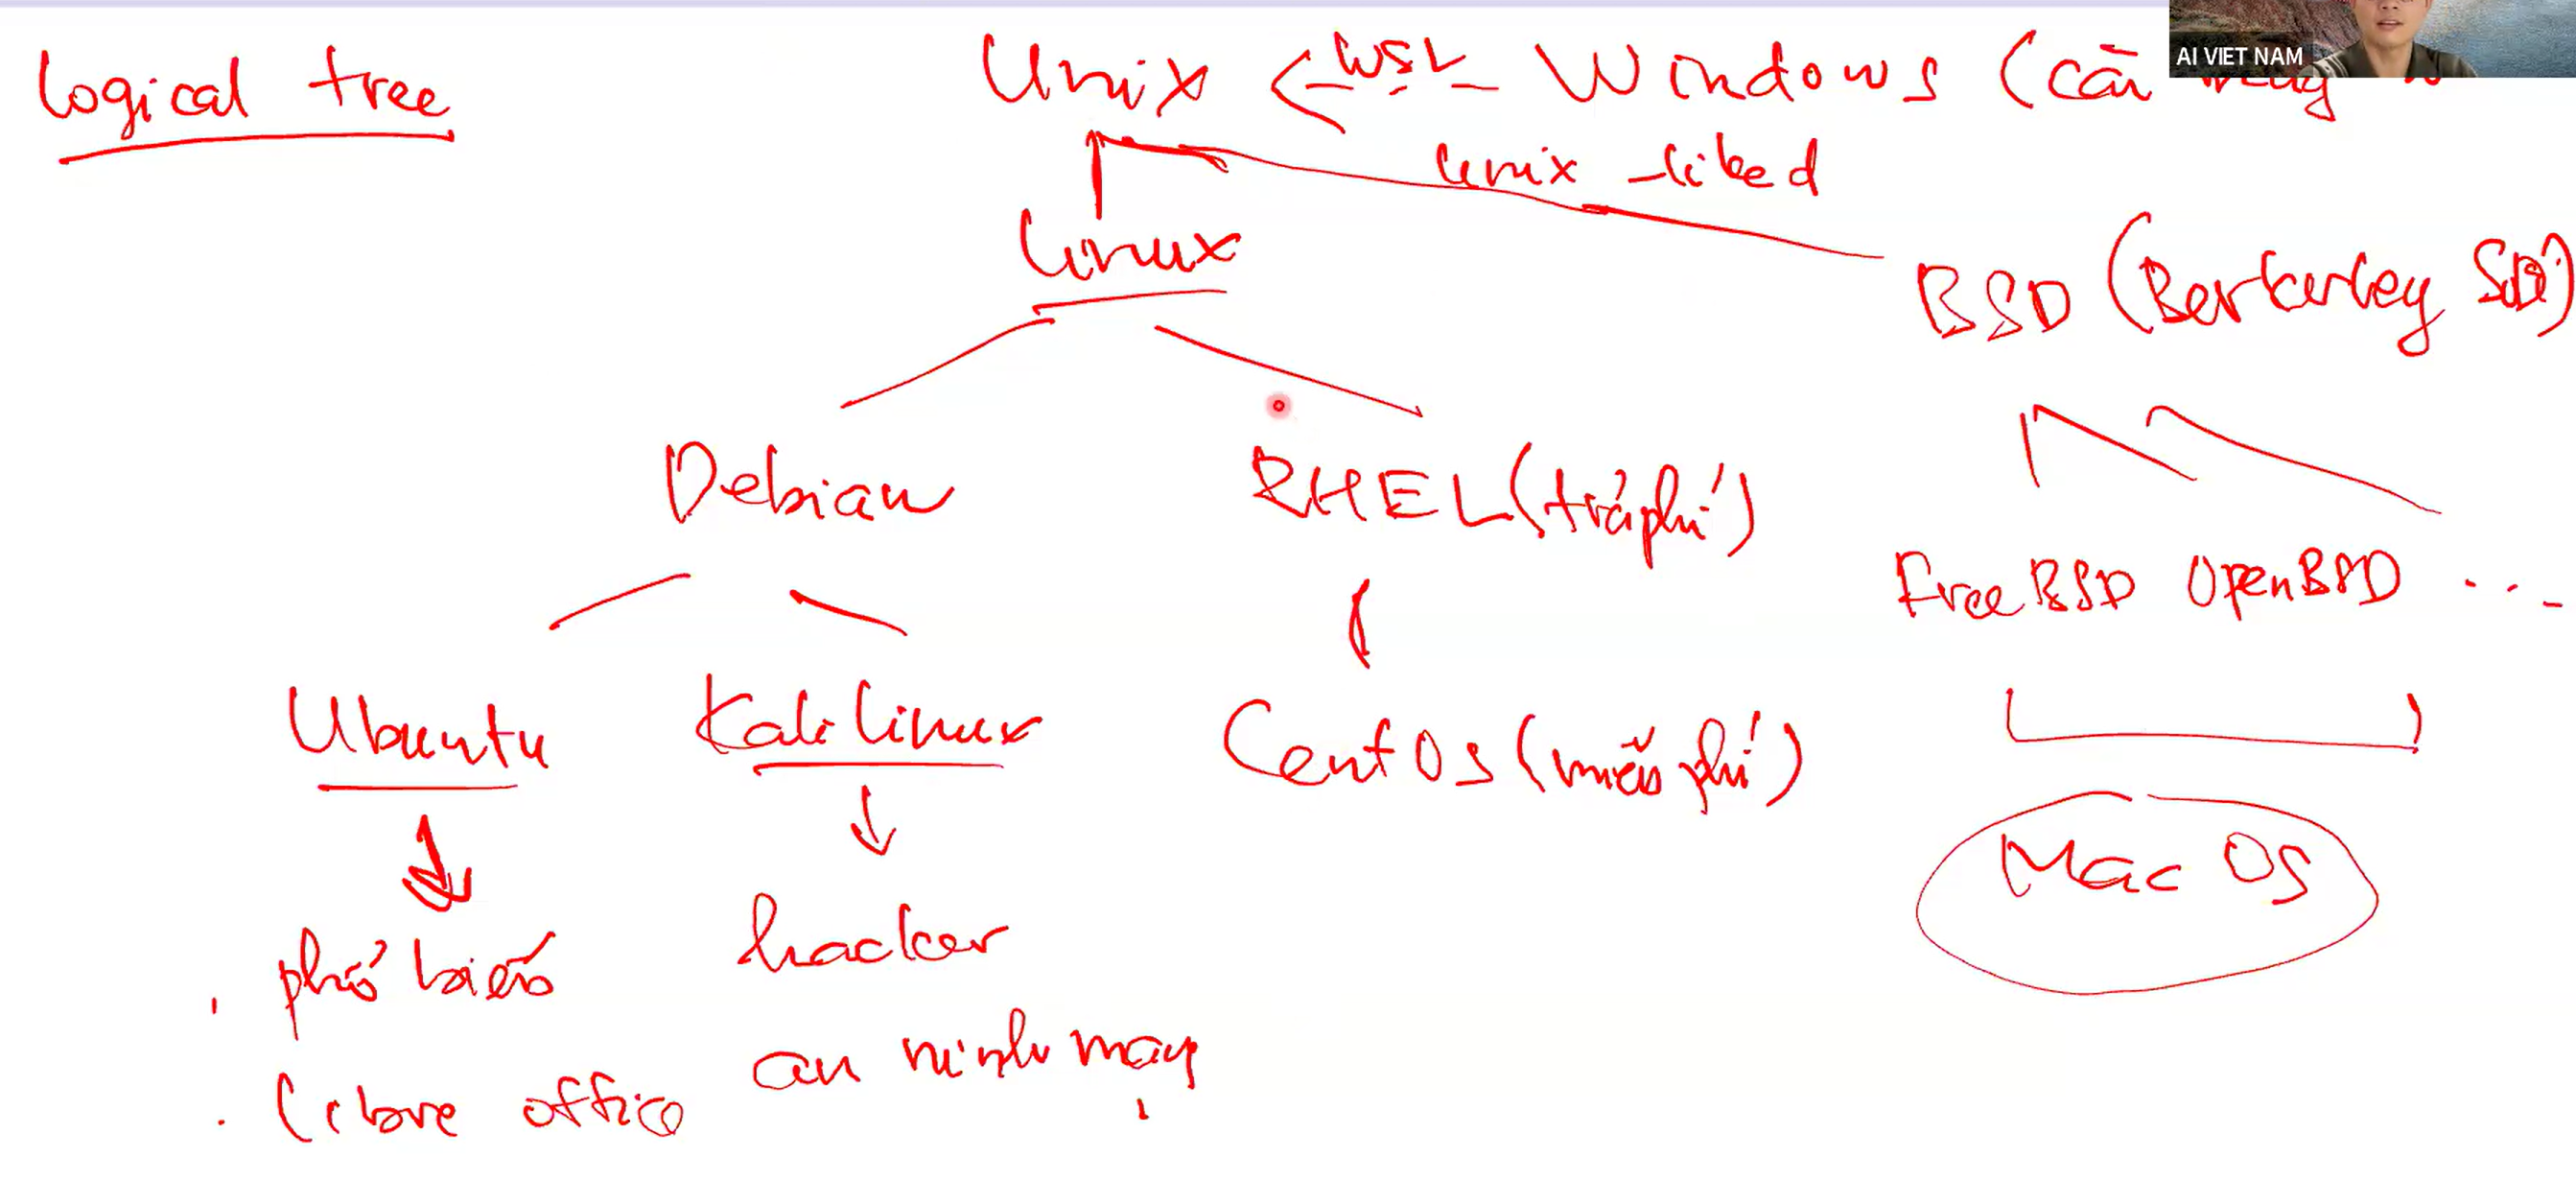 AI VIET NAM
logical tree
Unix <- WSL - Windows (cần
Unix-liked
Linux
BSD (Berkerley SD)
Debian
RHEL (trả phí)
FreeBSD OpenBSD ...
Ubuntu
Kali linux
CentOS (miễn phí)
Mac OS
. phổ biến
hacker
an ninh mạng
. Libre office